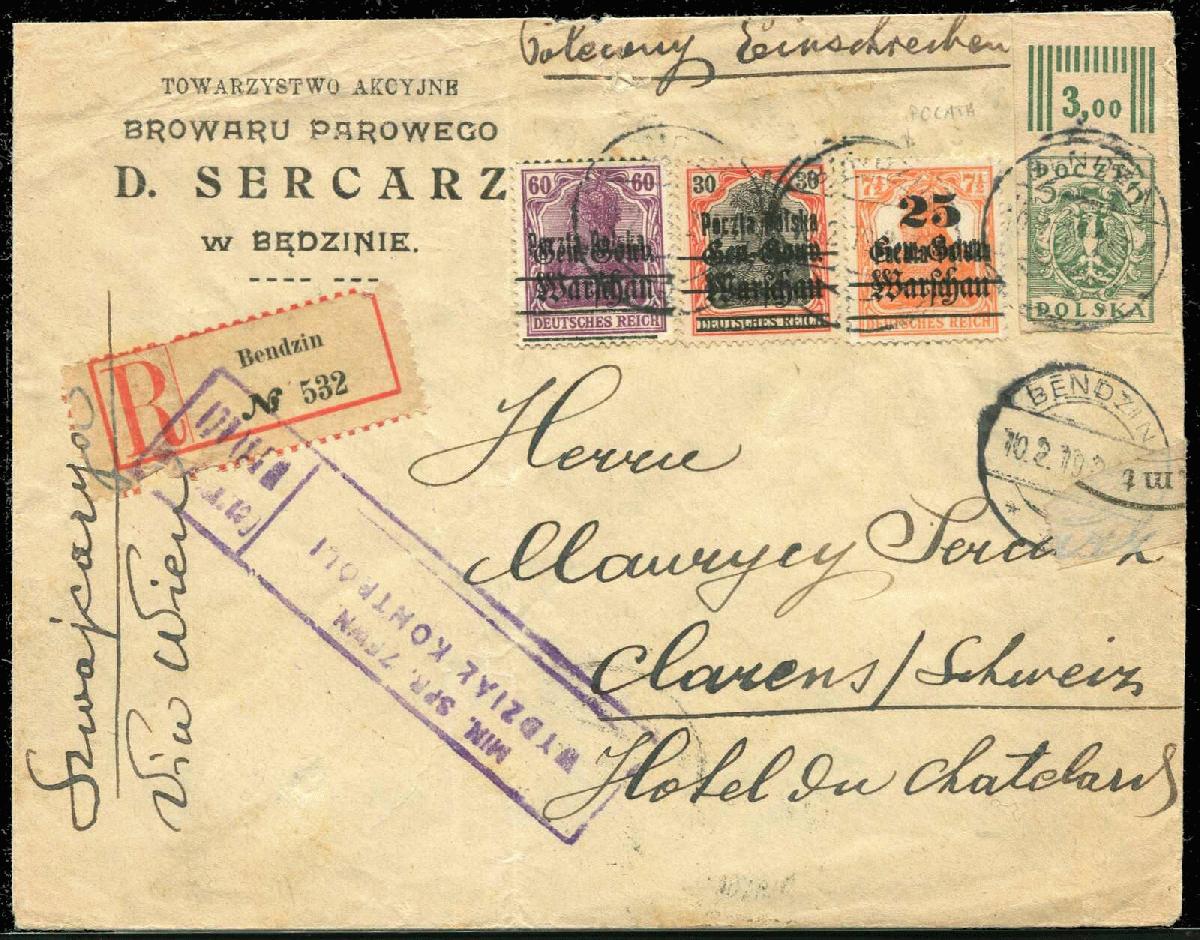 Polecony Einschreiben
TOWARZYSTWO AKCYJNE
BROWARU PAROWEGO
D. SERCARZ
W BĘDZINIE.
3,00
60 60
Gen.-Gouv.
Warschau
DEUTSCHES REICH
30 30
Poczta Polska
Gen.-Gouv.
Warschau
DEUTSCHES REICH
7½ 7½
25
Warschau
DEUTSCHES REICH
POCZTA
POLSKA
R
Bendzin
№ 532
BENDZIN
10.2.19
Szwajcarya
Via Wien
MIN. SPR. ZEWN
WYDZIAŁ KONTROLI
Herrn
Maurycy Sercarz
Clarens/Schweiz
Hotel du Chatelard